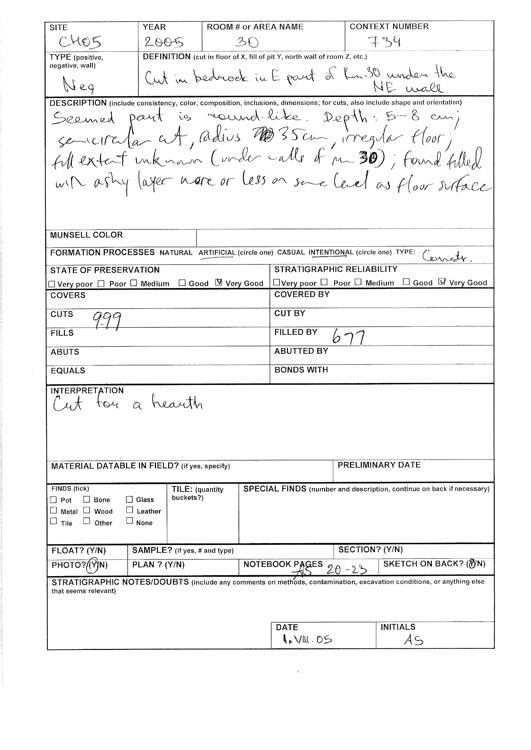 SITE YEAR ROOM # or AREA NAME CONTEXT NUMBER
CH05 2005 30 734
TYPE (positive, negative, wall) DEFINITION (cut in floor of X, fill of pit Y, north wall of room Z, etc.)
Neg Cut in bedrock in E part of Rm.30 under the
NE wall
DESCRIPTION (include consistency, color, composition, inclusions, dimensions; for cuts, also include shape and orientation)
Seemed part is round-like. Depth: 5-8 cm;
semicircular cut, radius 35cm, irregular floor;
full extent unknown (under walls of rm 30); found filled
with ashy layer more or less on same level as floor surface
MUNSELL COLOR
FORMATION PROCESSES NATURAL ARTIFICIAL (circle one) CASUAL INTENTIONAL (circle one) TYPE: Constr.
STATE OF PRESERVATION STRATIGRAPHIC RELIABILITY
☐ Very poor ☐ Poor ☐ Medium ☐ Good ☑ Very Good ☐ Very poor ☐ Poor ☐ Medium ☐ Good ☑ Very Good
COVERS COVERED BY
CUTS 999 CUT BY
FILLS FILLED BY 677
ABUTS ABUTTED BY
EQUALS BONDS WITH
INTERPRETATION
Cut for a hearth
MATERIAL DATABLE IN FIELD? (if yes, specify) PRELIMINARY DATE
FINDS (tick) TILE: (quantity buckets?) SPECIAL FINDS (number and description, continue on back if necessary)
☐ Pot ☐ Bone ☐ Glass
☐ Metal ☐ Wood ☐ Leather
☐ Tile ☐ Other ☐ None
FLOAT? (Y/N) SAMPLE? (if yes, # and type) SECTION? (Y/N)
PHOTO? (Y/N) PLAN ? (Y/N) NOTEBOOK PAGES AS 20-23 SKETCH ON BACK? (Y/N)
STRATIGRAPHIC NOTES/DOUBTS (include any comments on methods, contamination, excavation conditions, or anything else
that seems relevant)
DATE INITIALS
1.VIII.05 AS